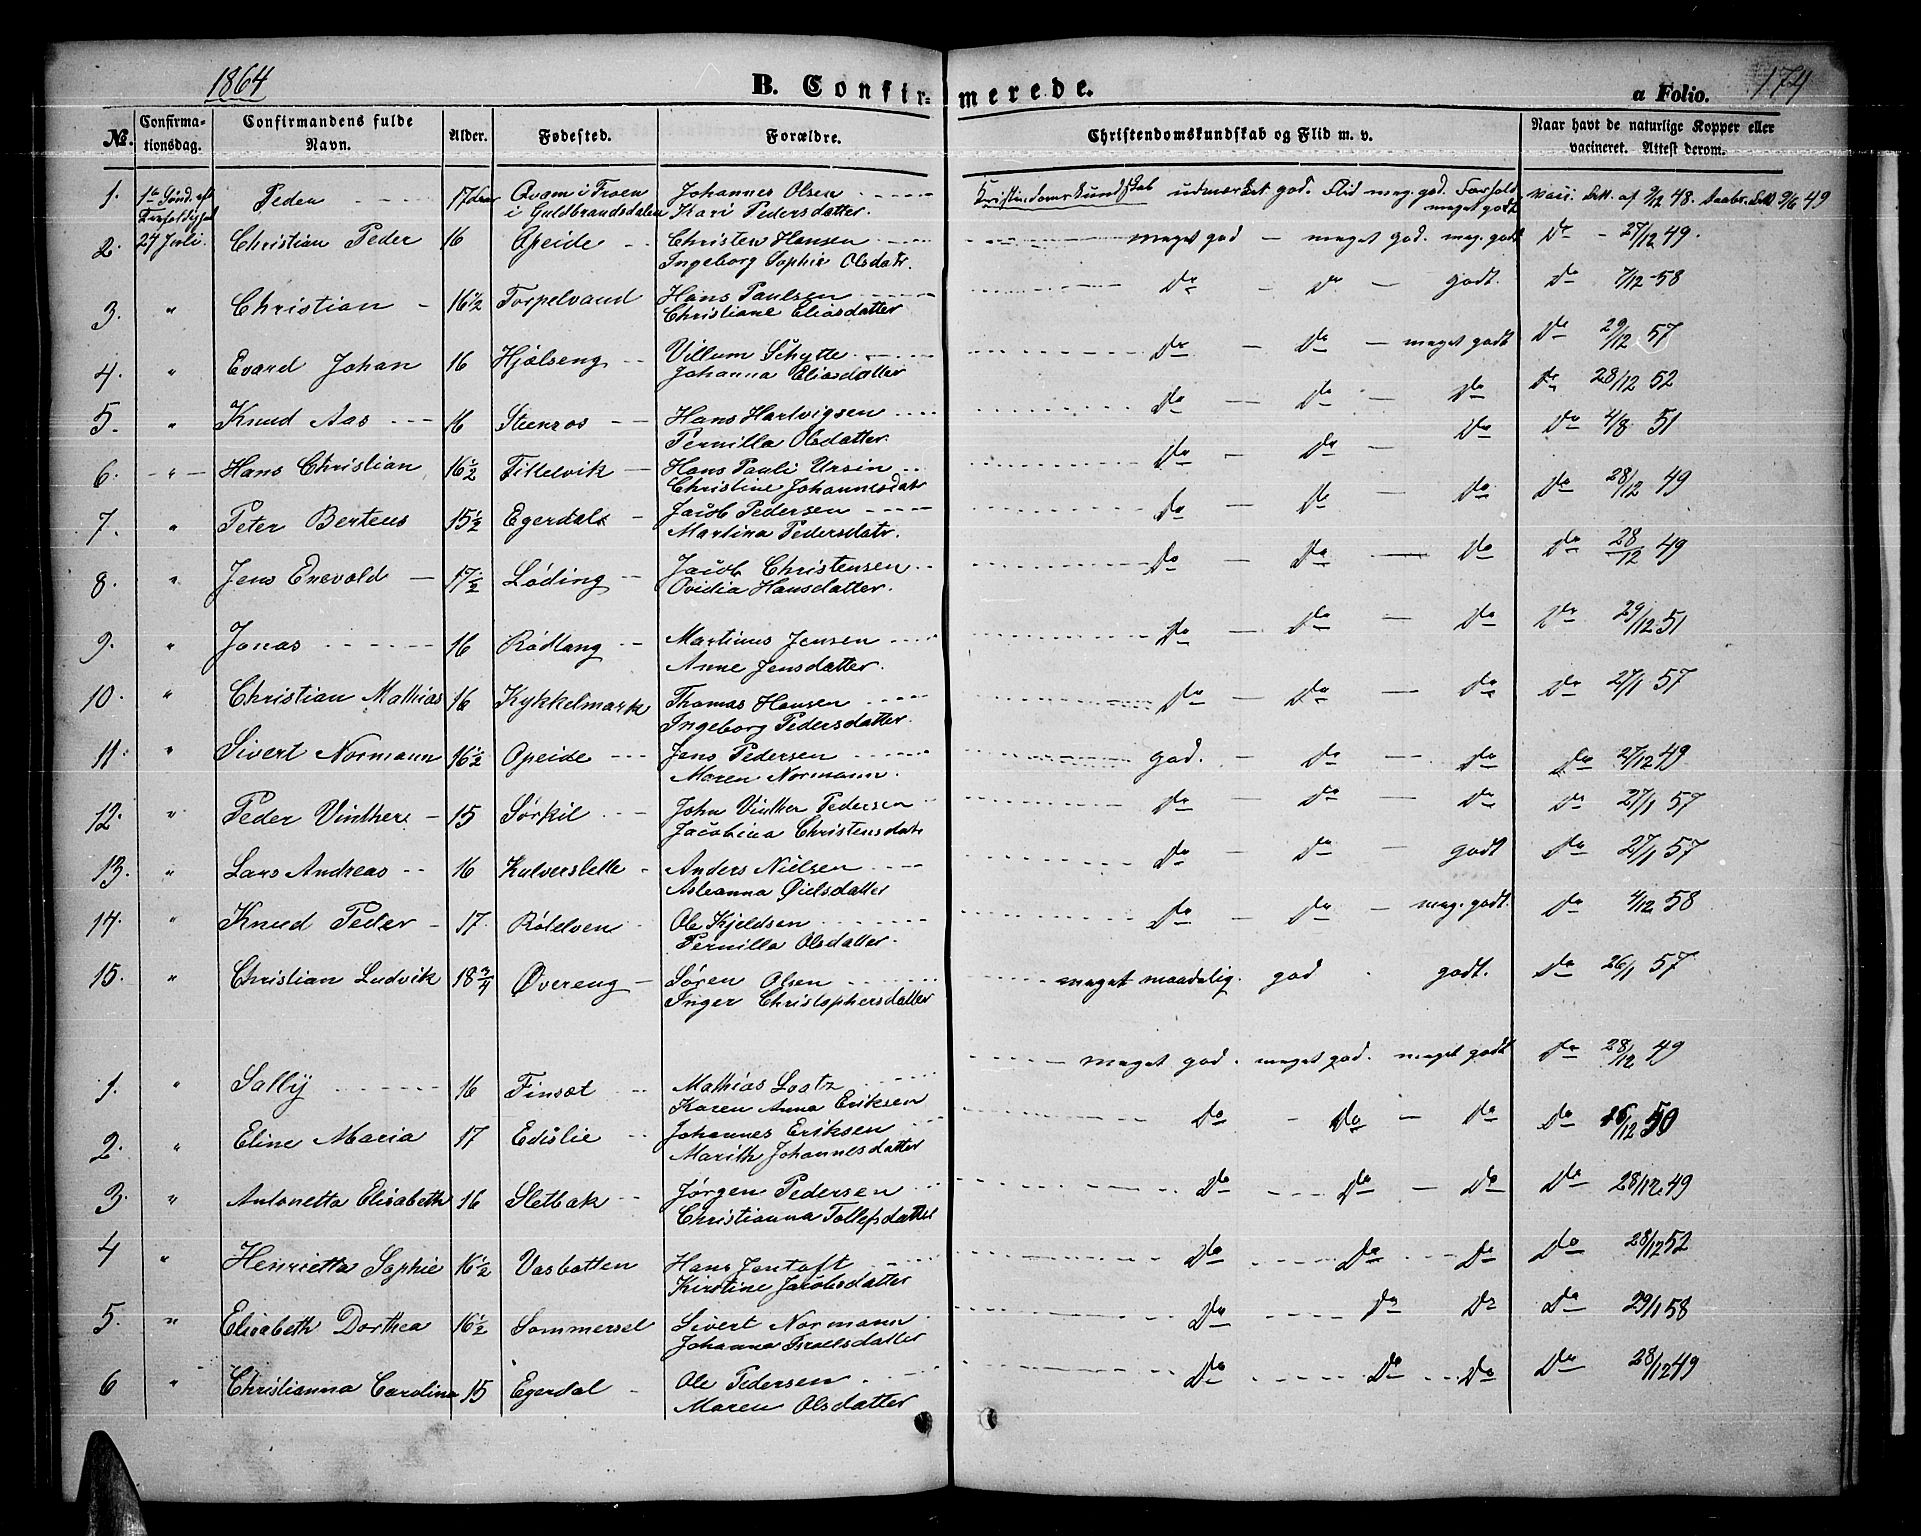 1864 B. Confirmerede. a Folio. 174
No. Confirmationsdag. Confirmandens fulde Navn. Alder. Fødested. Forældre. Christendomskundskab og Flid m. v. Naar havt de naturlige Kopper eller vacineret. Attest derom.
1. 1ste Sønd. eft. Peder 17 Qvam i Froen Johannes Olsen Kristendomskundskab udmærket god. Flid meg. god. Forhold vacc. Att. af 9/12 48. 9/6 49
i Guldbrandsdalen Kari Pedersdatter. meget godt
2. 24 Juli. Christian Peder 16 Opeide Christen Hansen meget god – meget god. meg. godt Do 27/12 49.
Ingeborg Sophie Olsdatr.
3. " Christian 16 1/2 Torpelvand Hans Paulsen Do Do godt. Do 7/12 58
Christiane Eliasdatter
4. " Evard Johan 16 Hjelseng Villum Schytte Do – Do – meget godt Do 29/12 57
Johanna Eliasdatter
5. " Knud Aas 16 Steenros Hans Hartvigsen Do – Do – Do Do 28/12 52
Pernilla Olsdatter
6. " Hans Christian 16 1/2 Tillelvik Hans Pauli Ursin Do – Do – Do Do 4/8 51
Christine Johannesdatr
7. " Peter Berteus 15 1/2 Egerdal Jacob Pedersen Do – Do – Do Do 28/12 49
Martina Pedersdatr.
8. " Jens Enevold 17 1/2 Løding Jacob Christensen Do – Do – Do Do 28/12 49
Ovidia Hansdatter.
9. " Jonas 16 Rødlang Martinus Jensen Do – Do – Do Do 29/12 51
Anne Jensdatter.
10. " Christian Mathias 16 Kykkelmark Thomas Hansen Do – Do – Do Do 27/1 57
Ingeborg Pedersdatter.
11. " Sivert Normann 16 1/2 Opeide Jens Pedersen god. – Do – Do Do 27/12 49
Maren Normann.
12. " Peder Vinther 15 Sørkil John Vinther Pedersen Do – Do – Do Do 27/1 57
Jacobina Christensdatr
13. " Lars Andreas 16 Kulverslette Anders Nielsen Do – Do – godt Do 27/1 57
Asleanna Øielsdatter
14. " Knud Peder 17 Røtelven Ole Kjeldsen Do – Do – meg. godt. Do 4/12 58
Pernilla Olsdatter.
15. " Christian Ludvik 18 3/4 Øvereng Søren Olsen meget maadelig. god godt. Do 26/1 57
Inger Christophersdatter
1. " Sally 16 Finsæt Mathias Lootz meget god. meget god. meget godt Do 28/12 49
Karen Anna Eriksen
2. " Eline Maria 17 Edislie Johannes Eriksen Do – Do – Do Do 16/12 50
Marith Johannesdatter
3. " Antonetta Elisabeth 16 Sletbak Jørgen Pedersen Do Do – Do Do 28/12 49
Christianna Tollefsdatter
4 " Henrietta Sophie 16 1/2 Vasbotten Hans Jentoft Do Do Do Do 28/12 52
Kirstine Jacobsdatter
5. " Elisabeth Dorthea 16 1/2 Sommersel Sivert Normann Do Do Do Do 29/1 58
Johanna Israelsdatter
6 " Christianna Carolina 15 Egerdal Ole Pedersen Do Do Do Do 28/12 49
Maren Olsdatter